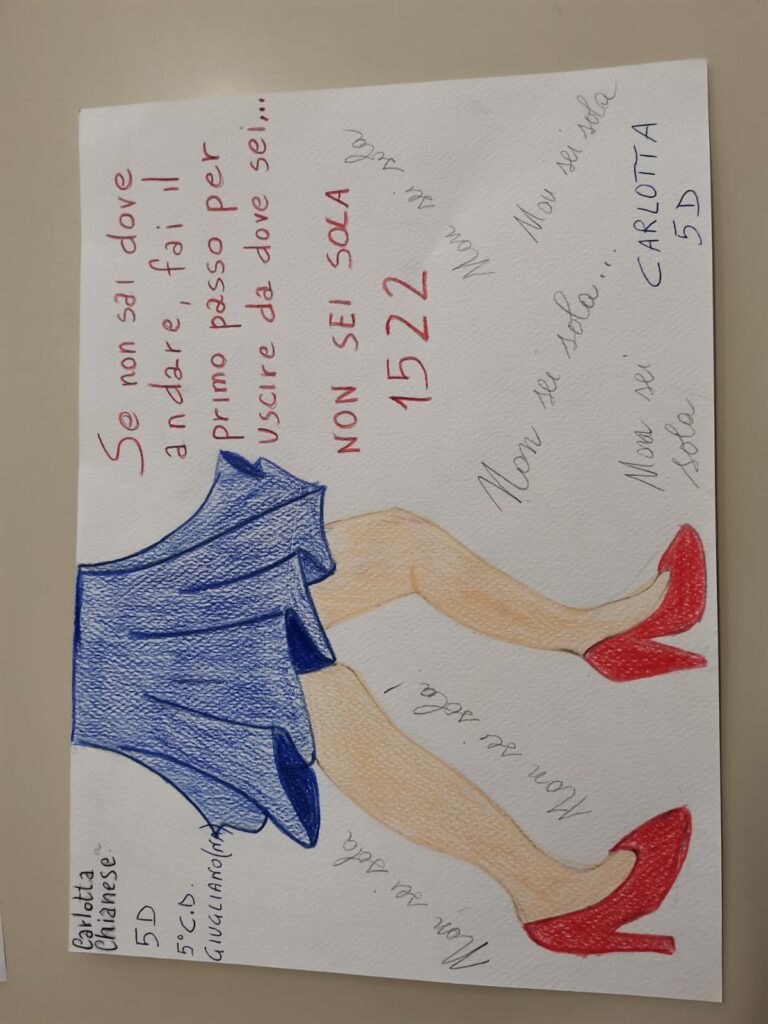 Carlotta
Chianese
5D
5° C.D.
GIUGLIANO (NA)
Se non sai dove
andare, fai il
primo passo per
uscire da dove sei...
NON SEI SOLA
1522
Non sei sola
Non sei sola
Non sei sola...
Non sei
sola
Non sei sola!
Non sei sola
CARLOTTA
5D